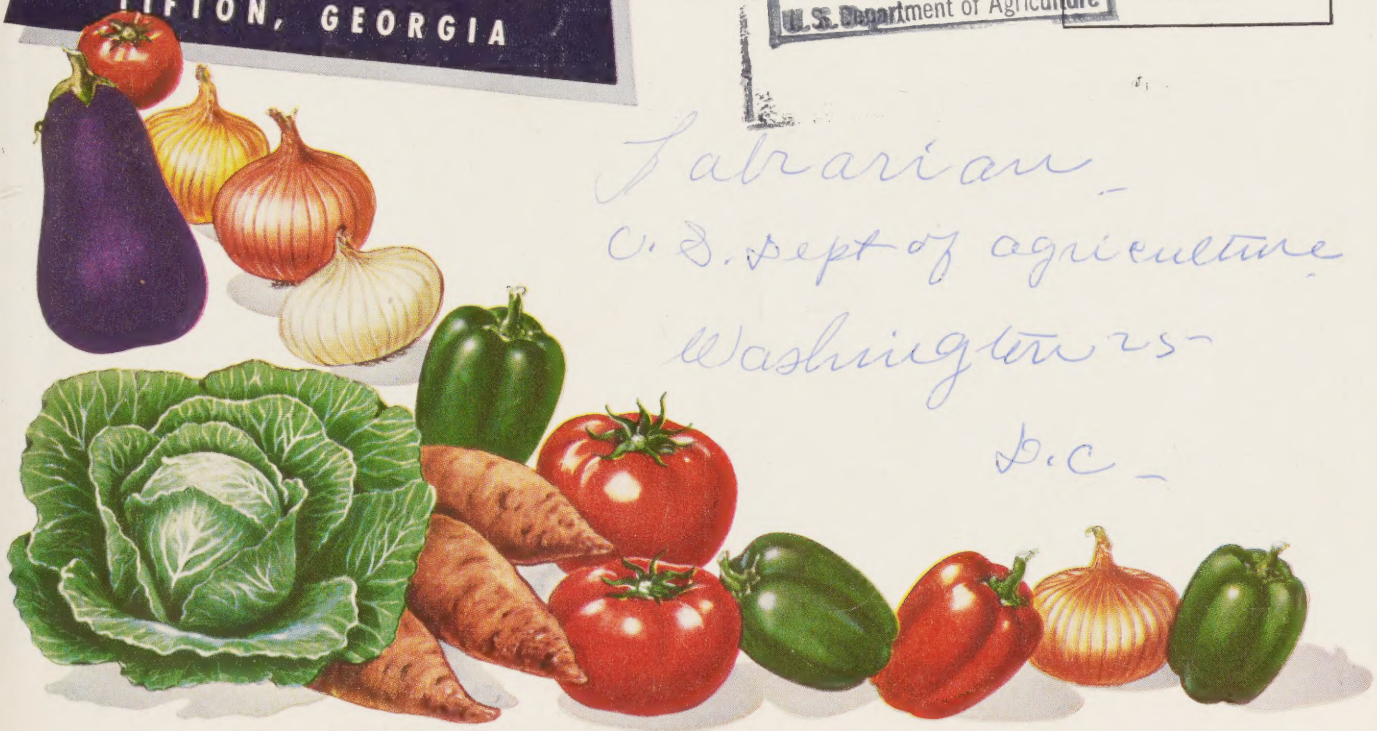 TIFTON, GEORGIA
U.S. Department of Agriculture
Labrarian
U. S. Dept of agriculture
Washington 25
D.C